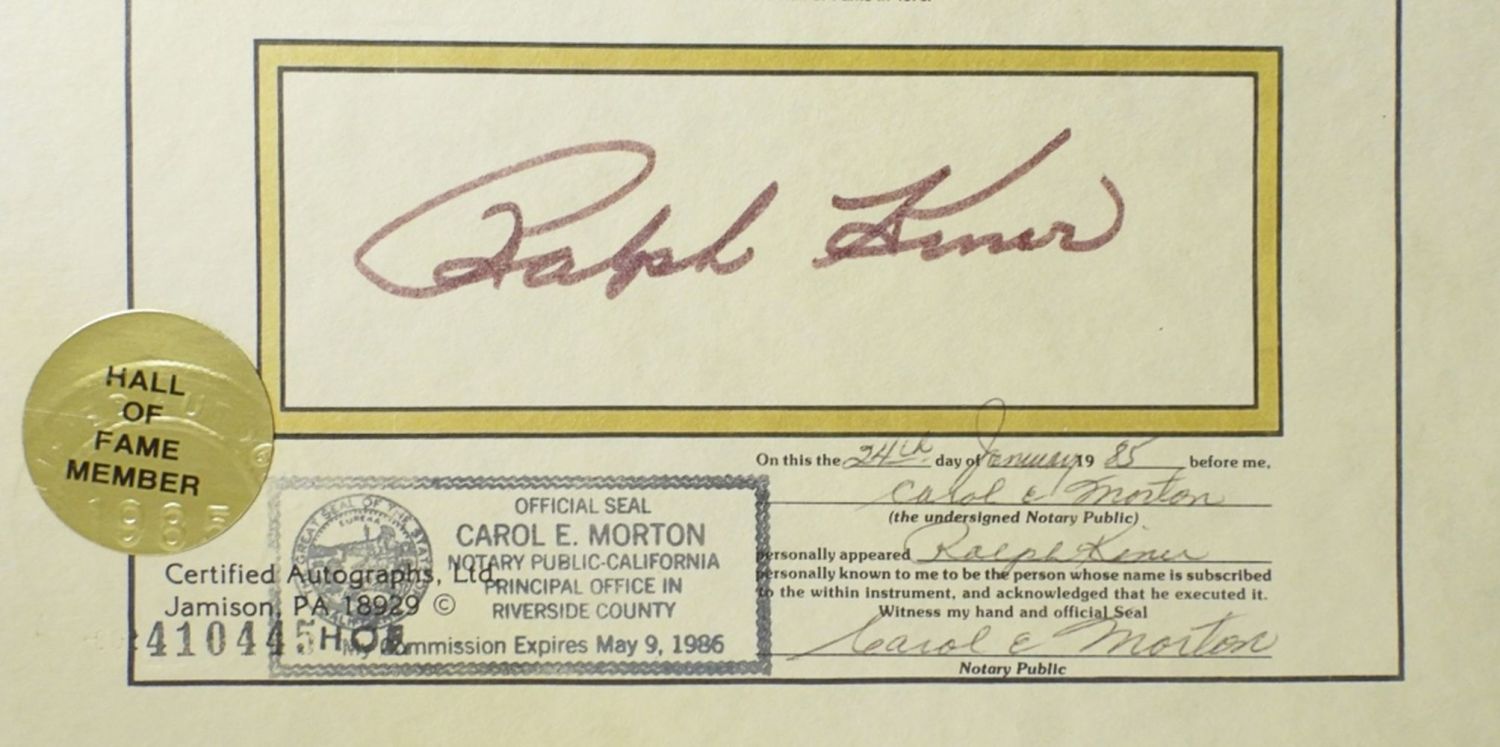 Ralph Kiner
HALL
OF
FAME
MEMBER
198
On this the 24th day of January 19 85 before me,
Carol E Morton
(the undersigned Notary Public)
personally appeared Ralph Kiner
personally known to me to be the person whose name is subscribed
to the within instrument, and acknowledged that he executed it.
Witness my hand and official Seal
Carol E Morton
Notary Public
GREAT SEAL OF THE STATE
EUREKA
OFFICIAL SEAL
CAROL E. MORTON
NOTARY PUBLIC-CALIFORNIA
PRINCIPAL OFFICE IN
RIVERSIDE COUNTY
My Commission Expires May 9, 1986
Certified Autographs, Ltd.
Jamison, PA 18929 ©
410445HOF